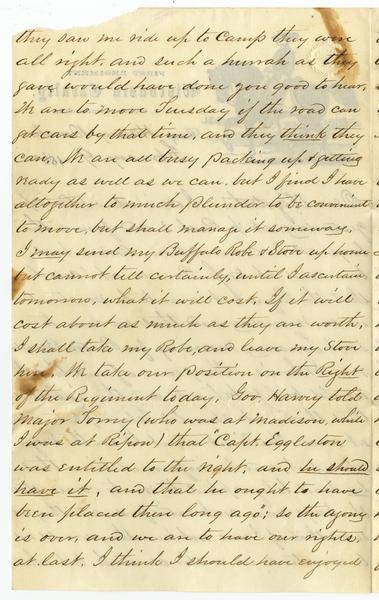 they saw me ride up to Camp they were
all right, and such a hurrah as they
gave would have done you good to hear.
We are to move Tuesday if the road can
get cars by that time, and they think they
can. We are all busy packing up & getting
ready as well as we can, but I find I have
altogether to much plunder to be convenient
to move, but shall manage it someway.
I may send my Buffalo Robe & Stove up home
but cannot tell certainly, until I ascertain
tomorrow, what it will cost. If it will
cost about as much as they are worth,
I shall take my Robe, and leave my Stove
here. We take our position on the Right
of the Regiment today. Gov. Harvey told
Major Torrey (who was at Madison, while
I was at Ripon) that "Capt. Eggleston
was entitled to the right, and he should
have it, and that he ought to have
been placed there long ago"; so the agony
is over, and we are to have our rights,
at last. I think I should have enjoyed